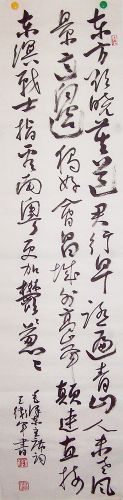 东方欲晓莫道君行早踏遍青山人未老风
景这边独好會昌城外高峰颠连直接
东溟战士指看南粤更加鬱鬱葱葱
毛泽东主席词
书